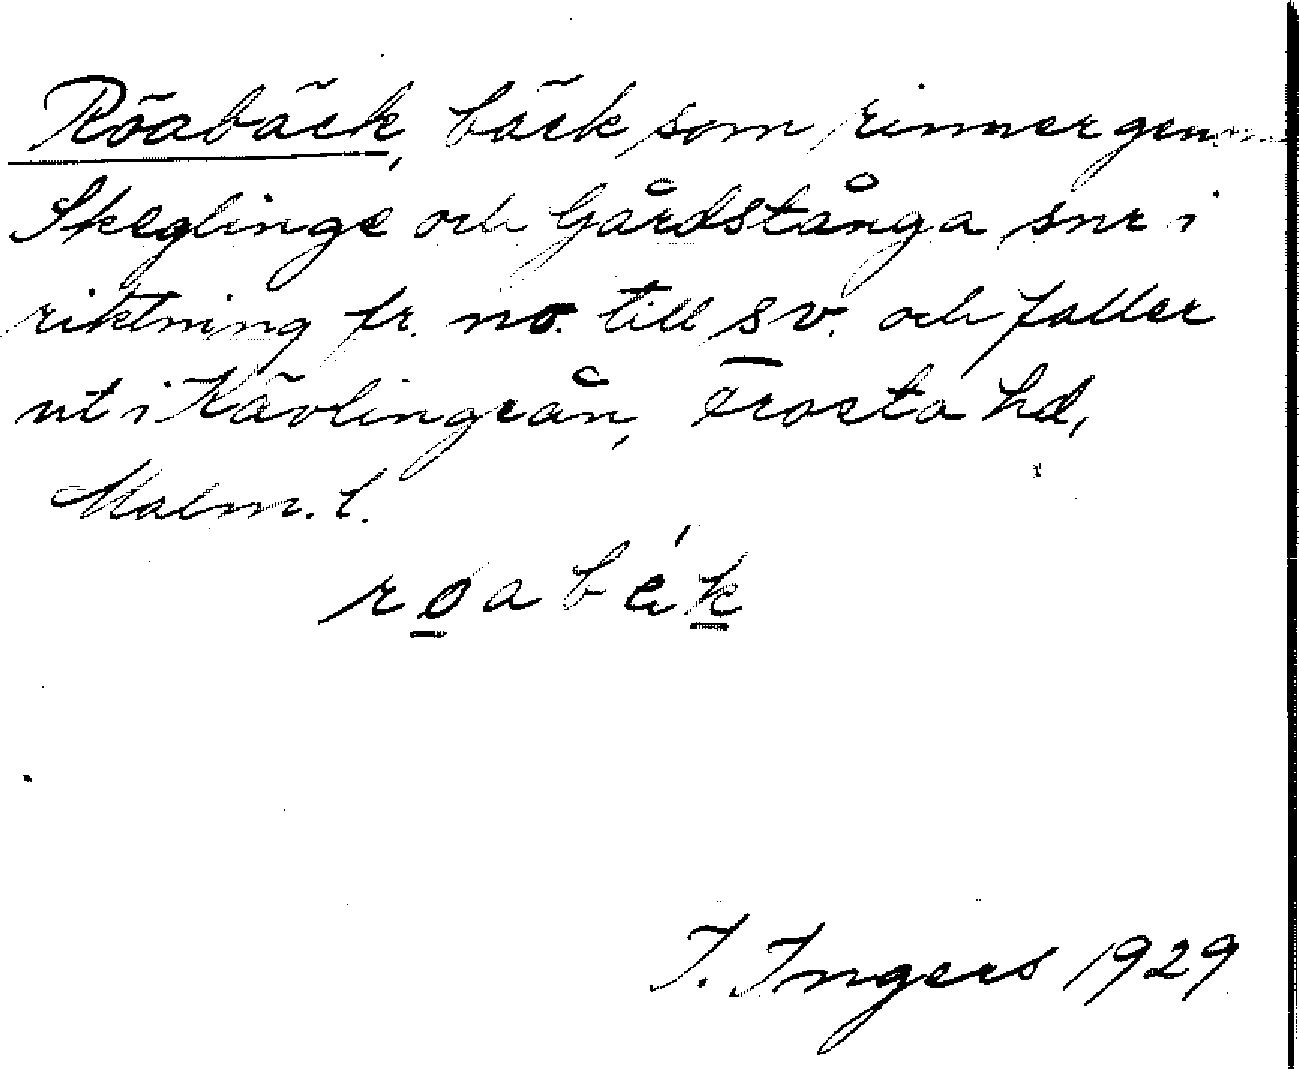 Röabäck, bäck som rinner genom
Skeglinge och Gårdstånga snr i
riktning fr. no. till sv. och faller
ut i Kävlingeån, Frosta hd,
Malm. l.
I. Ingers 1929